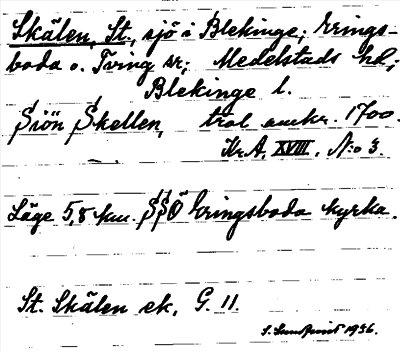 Skälen, St., sjö i Blekinge; Erings-
boda o. Tving sr; Medelstads hd;
Blekinge l.
Siön Skellen, trol. omkr. 1700.
Kr.A. XVIII, N:o 3.
Läge 5,8 km. SSÖ Eringsboda kyrka.
St. Skälen ek. G. 11.
1936.